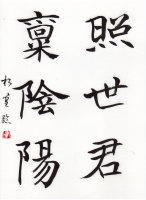 照世君
稟陰陽